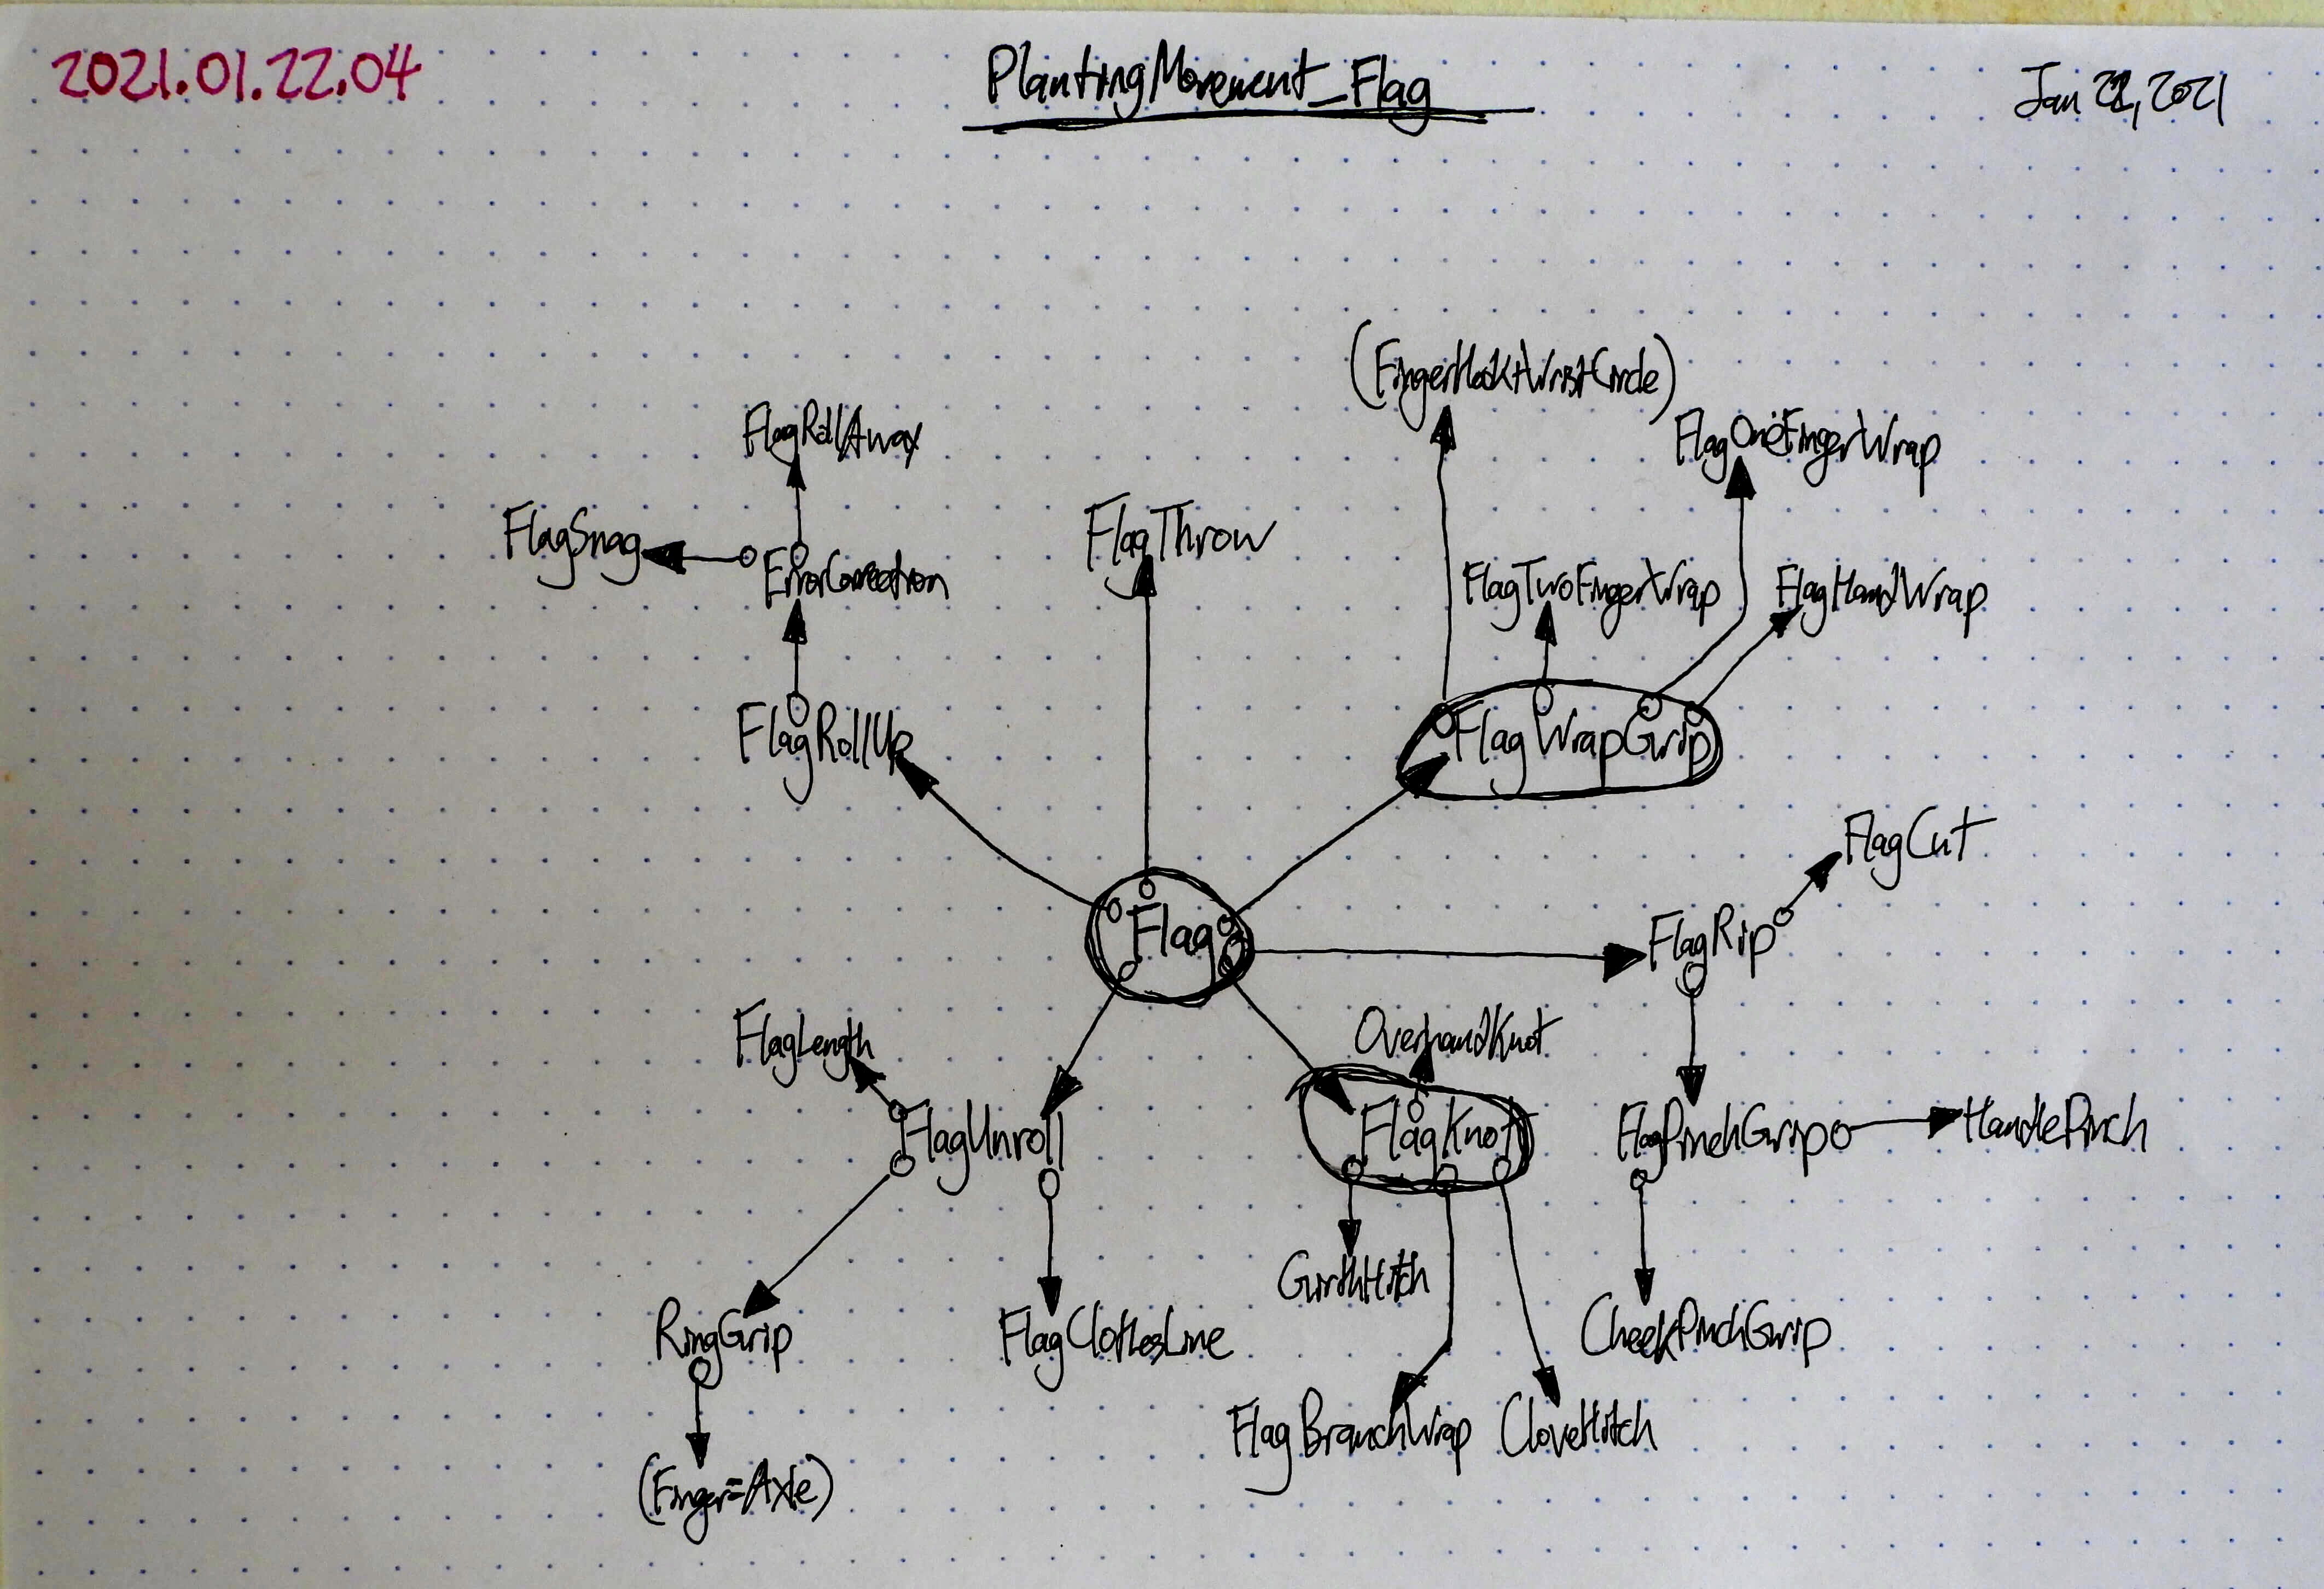 2021.01.22.04
PlantingMovement_Flag
Jan 22, 2021
(FingerHook+WristCircle)
FlagRollAway
FlagOneFingerWrap
FlagSnag
ErrorCorrection
FlagThrow
FlagTwoFingerWrap
FlagHandWrap
FlagRollUp
FlagWrapGrip
FlagCut
Flag
FlagRip
FlagLength
OverhandKnot
FlagUnroll
FlagKnot
FlagPinchGrip
HandlePinch
GirthHitch
RingGrip
FlagClothesLine
CheekPinchGrip
FlagBranchWrap
CloveHitch
(Finger=Axle)